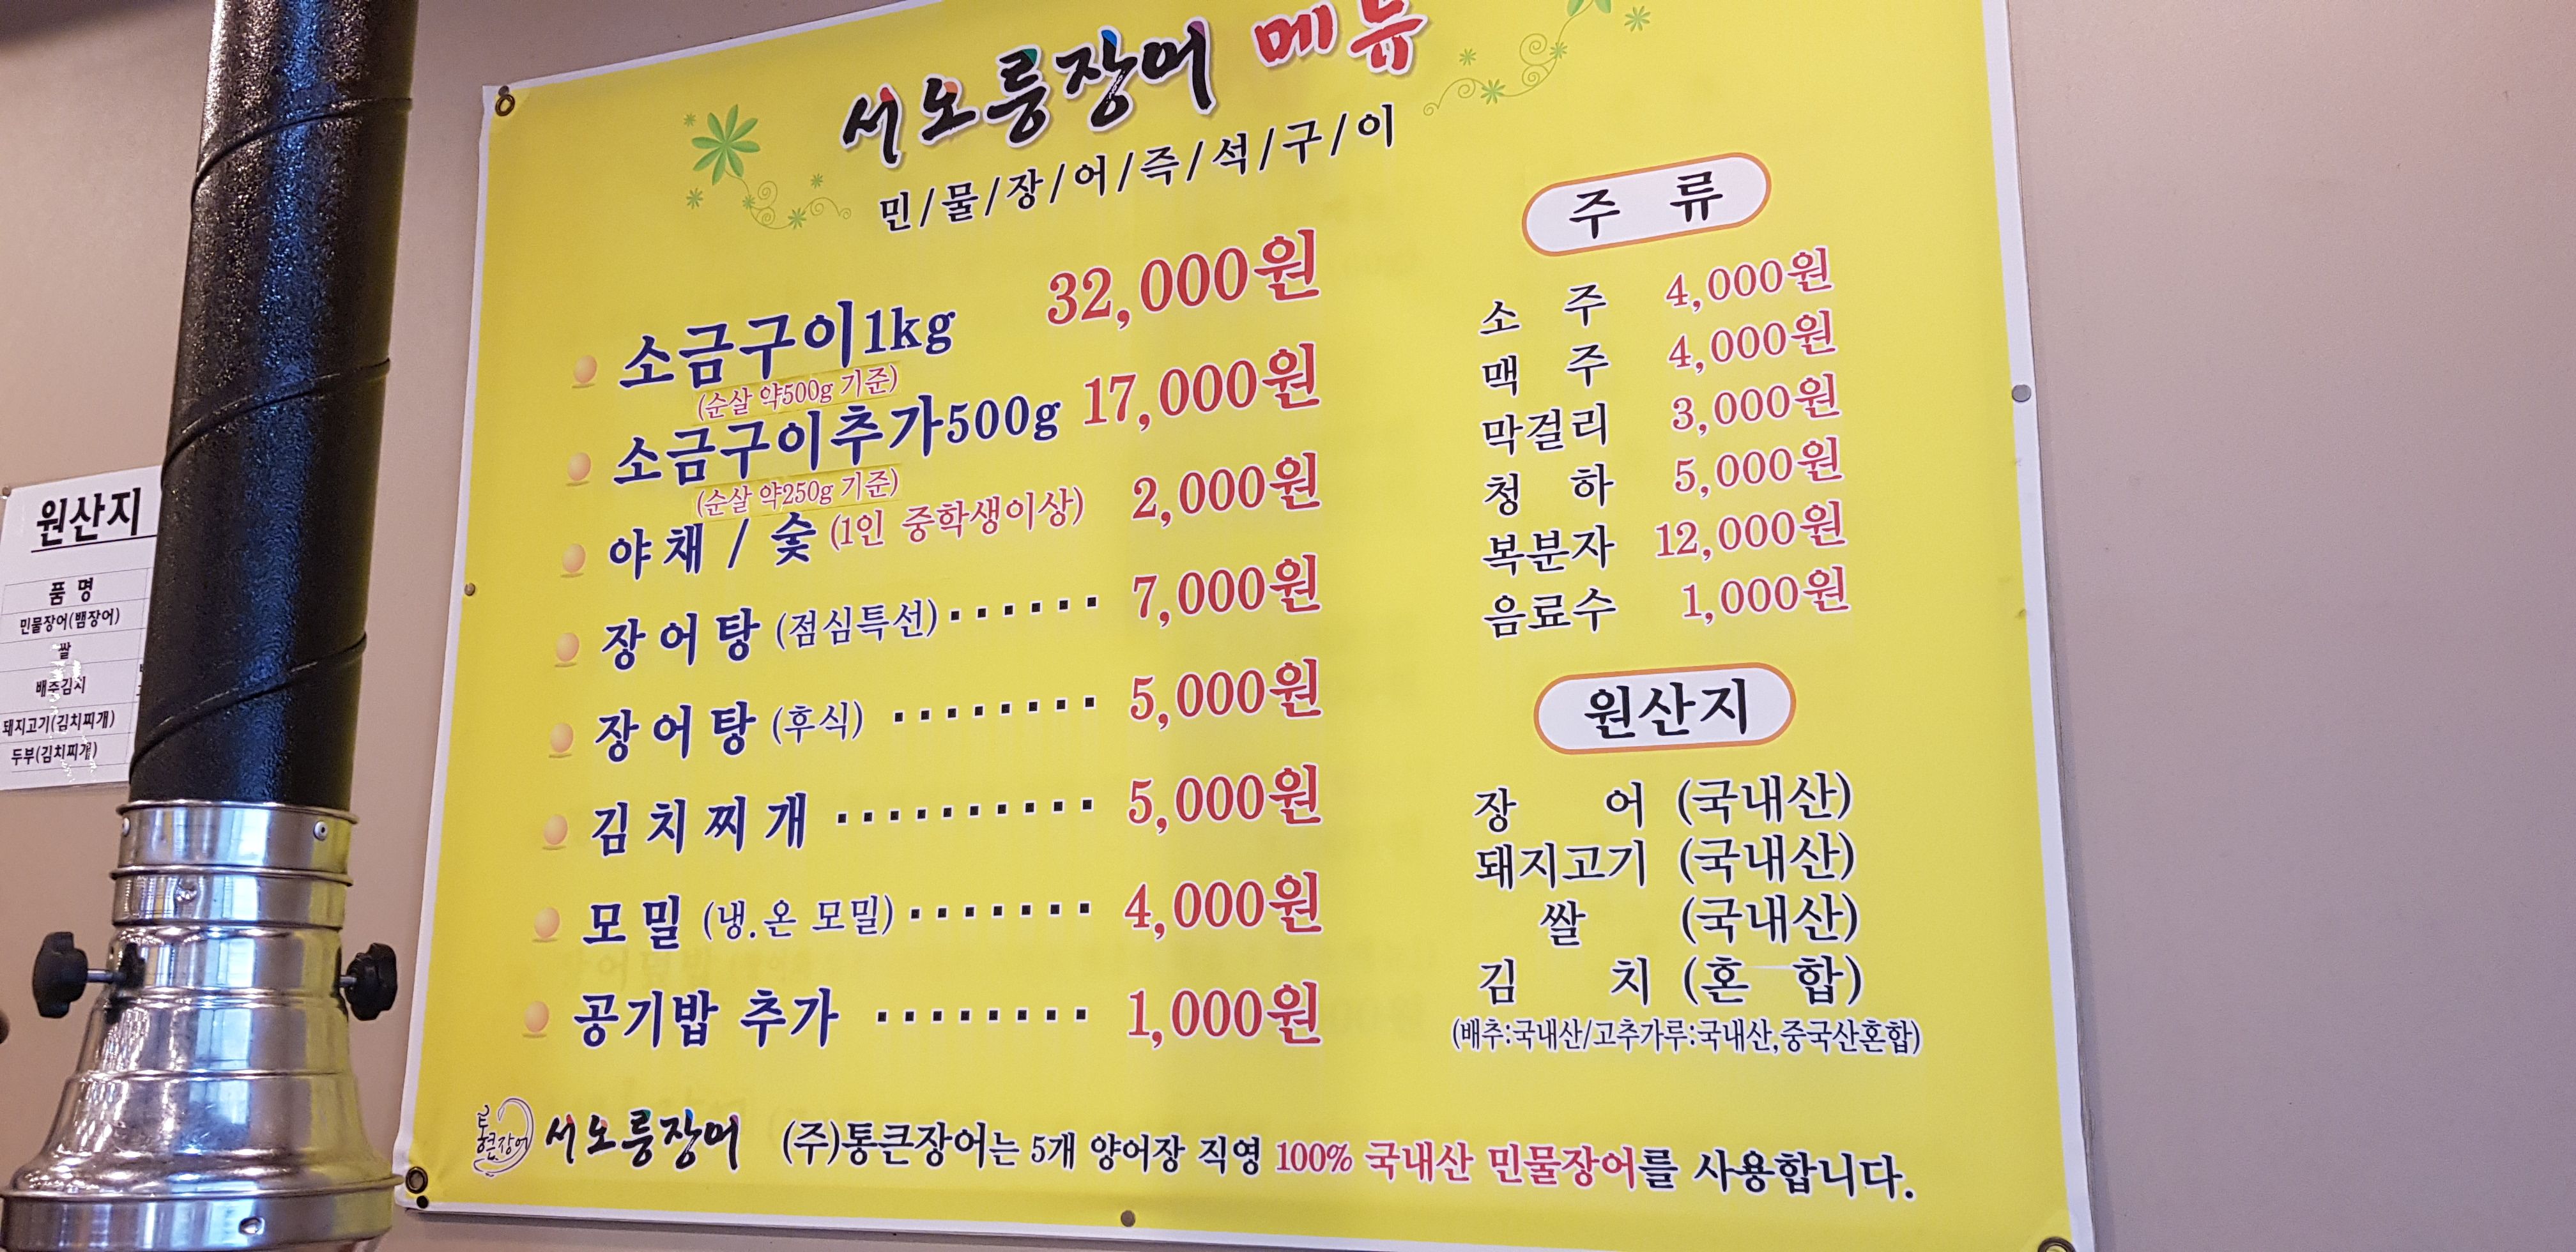 서오릉장어 메뉴
민/물/장/어/즉/석/구/이
소금구이1kg 32,000원
(순살 약500g 기준)
소금구이추가500g 17,000원
(순살 약250g 기준)
야채 / 숯 (1인 중학생이상) 2,000원
장어탕 (점심특선) ······ 7,000원
장어탕 (후식) ········ 5,000원
김치찌개 ·········· 5,000원
모밀 (냉.온 모밀) ······· 4,000원
공기밥 추가 ········ 1,000원
주 류
소 주 4,000원
맥 주 4,000원
막걸리 3,000원
청 하 5,000원
복분자 12,000원
음료수 1,000원
원산지
장 어 (국내산)
돼지고기 (국내산)
쌀 (국내산)
김 치 (혼 합)
(배추:국내산/고추가루:국내산,중국산혼합)
통큰장어 서오릉장어 (주)통큰장어는 5개 양어장 직영 100% 국내산 민물장어를 사용합니다.
원산지
품 명
민물장어(뱀장어)
쌀
배추김치
돼지고기(김치찌개)
두부(김치찌개)